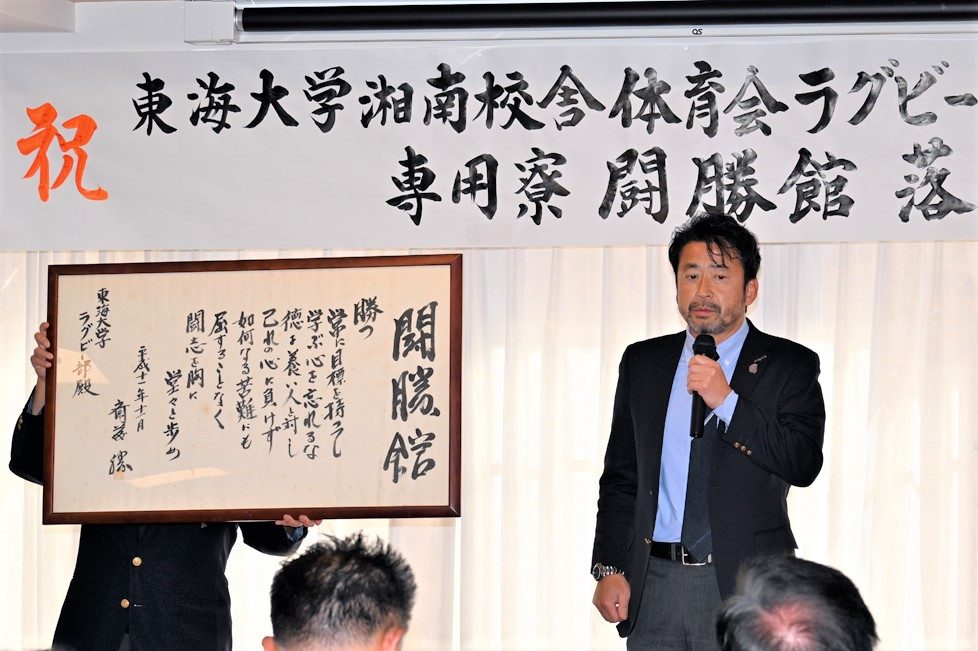 祝
東海大学湘南校舎体育会ラグビー
専用寮 闘勝館 落
闘勝館
勝つ
常に目標を持って
学ぶ心を忘れるな
徳を養い人と対し
己れの心に負けず
如何なる苦難にも
屈することなく
闘志を胸に
堂々と歩め
平成十一年十二月
斎藤 勝
東海大学
ラグビー部殿